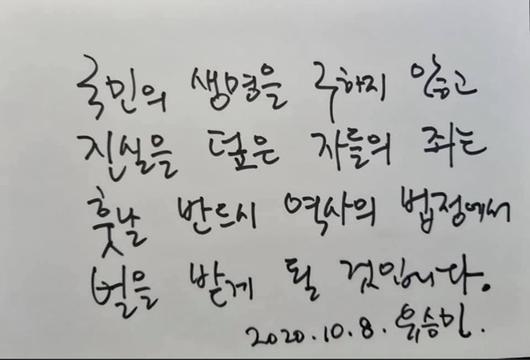 국민의 생명을 구하지 않고
진실을 덮은 자들의 죄는
훗날 반드시 역사의 법정에서
벌을 받게 될 것입니다.
2020.10.8. 유승민.